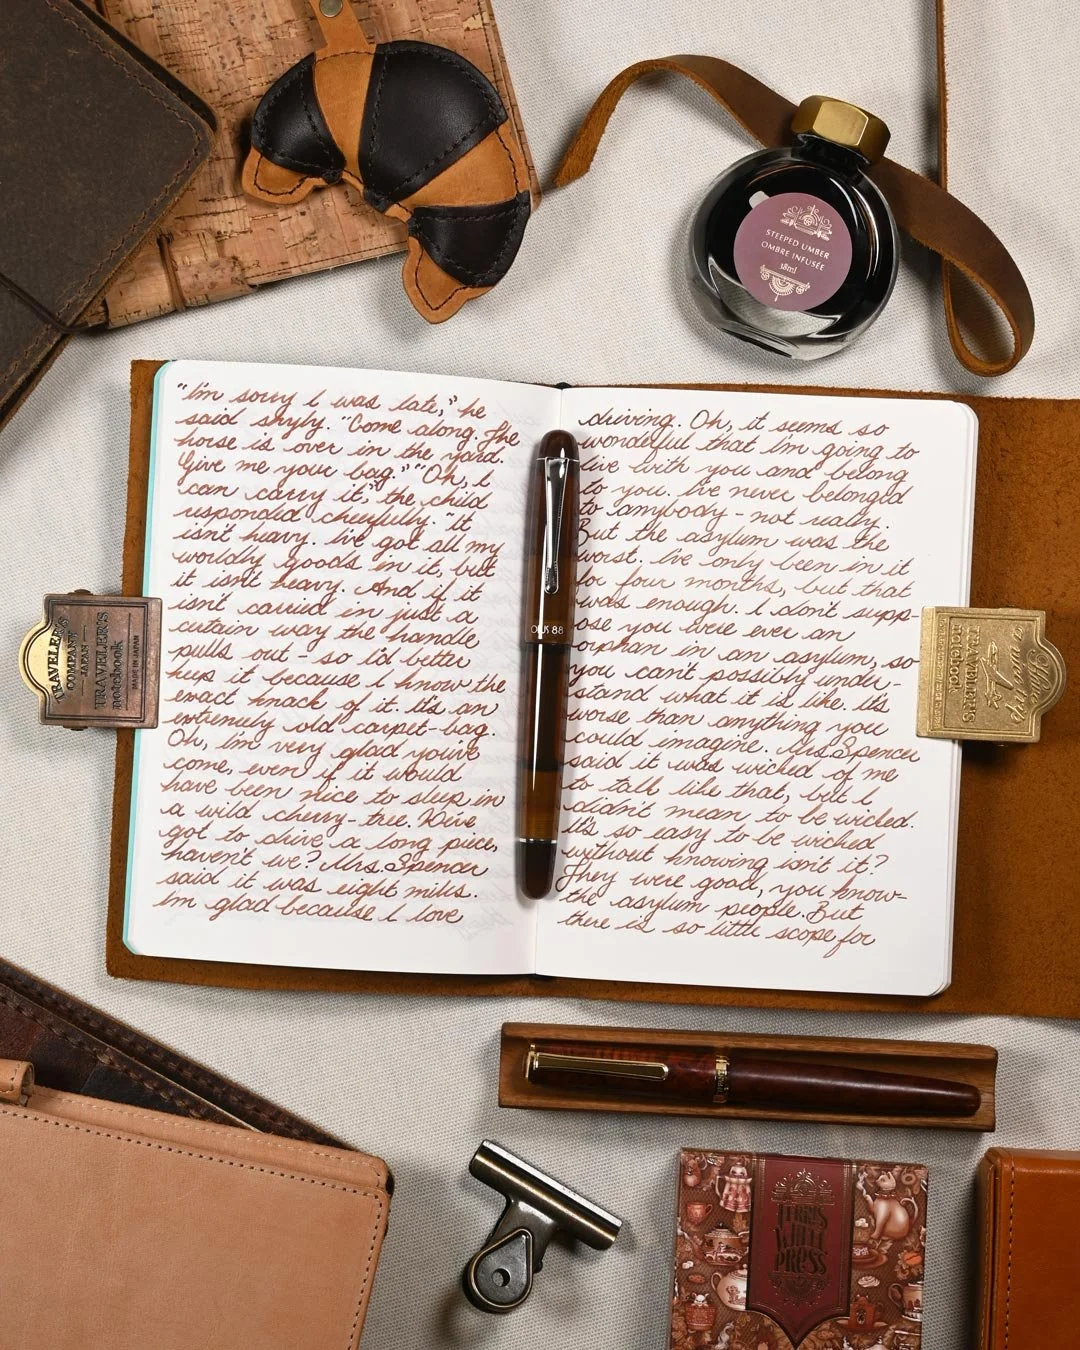 STEEPED UMBER
OMBRE INFUSÉE
18ml
"I'm sorry I was late," he
said shyly. "Come along. The
horse is over in the yard.
Give me your bag." "Oh, I
can carry it," the child
responded cheerfully. "It
isn't heavy. I've got all my
worldly goods in it, but
it isn't heavy. And if it
isn't carried in just a
certain way the handle
pulls out - so I'd better
keep it because I know the
exact knack of it. It's an
extremely old carpet-bag.
Oh, I'm very glad you've
come, even if it would
have been nice to sleep in
a wild cherry-tree. We've
got to drive a long piece,
haven't we? Mrs. Spencer
said it was eight miles.
I'm glad because I love
driving. Oh, it seems so
wonderful that I'm going to
live with you and belong
to you. I've never belonged
to anybody - not really.
But the asylum was the
worst. I've only been in it
for four months, but that
was enough. I don't supp-
ose you were ever an
orphan in an asylum, so
you can't possibly under-
stand what it is like. It's
worse than anything you
could imagine. Mrs. Spencer
said it was wicked of me
to talk like that, but I
didn't mean to be wicked.
It's so easy to be wicked
without knowing isn't it?
They were good, you know-
the asylum people. But
there is so little scope for
OPUS 88
TRAVELER'S
COMPANY
JAPAN
TRAVELER'S
notebook
MADE IN JAPAN
TRAVELER'S
notebook
FERRIS
WHEEL
PRESS